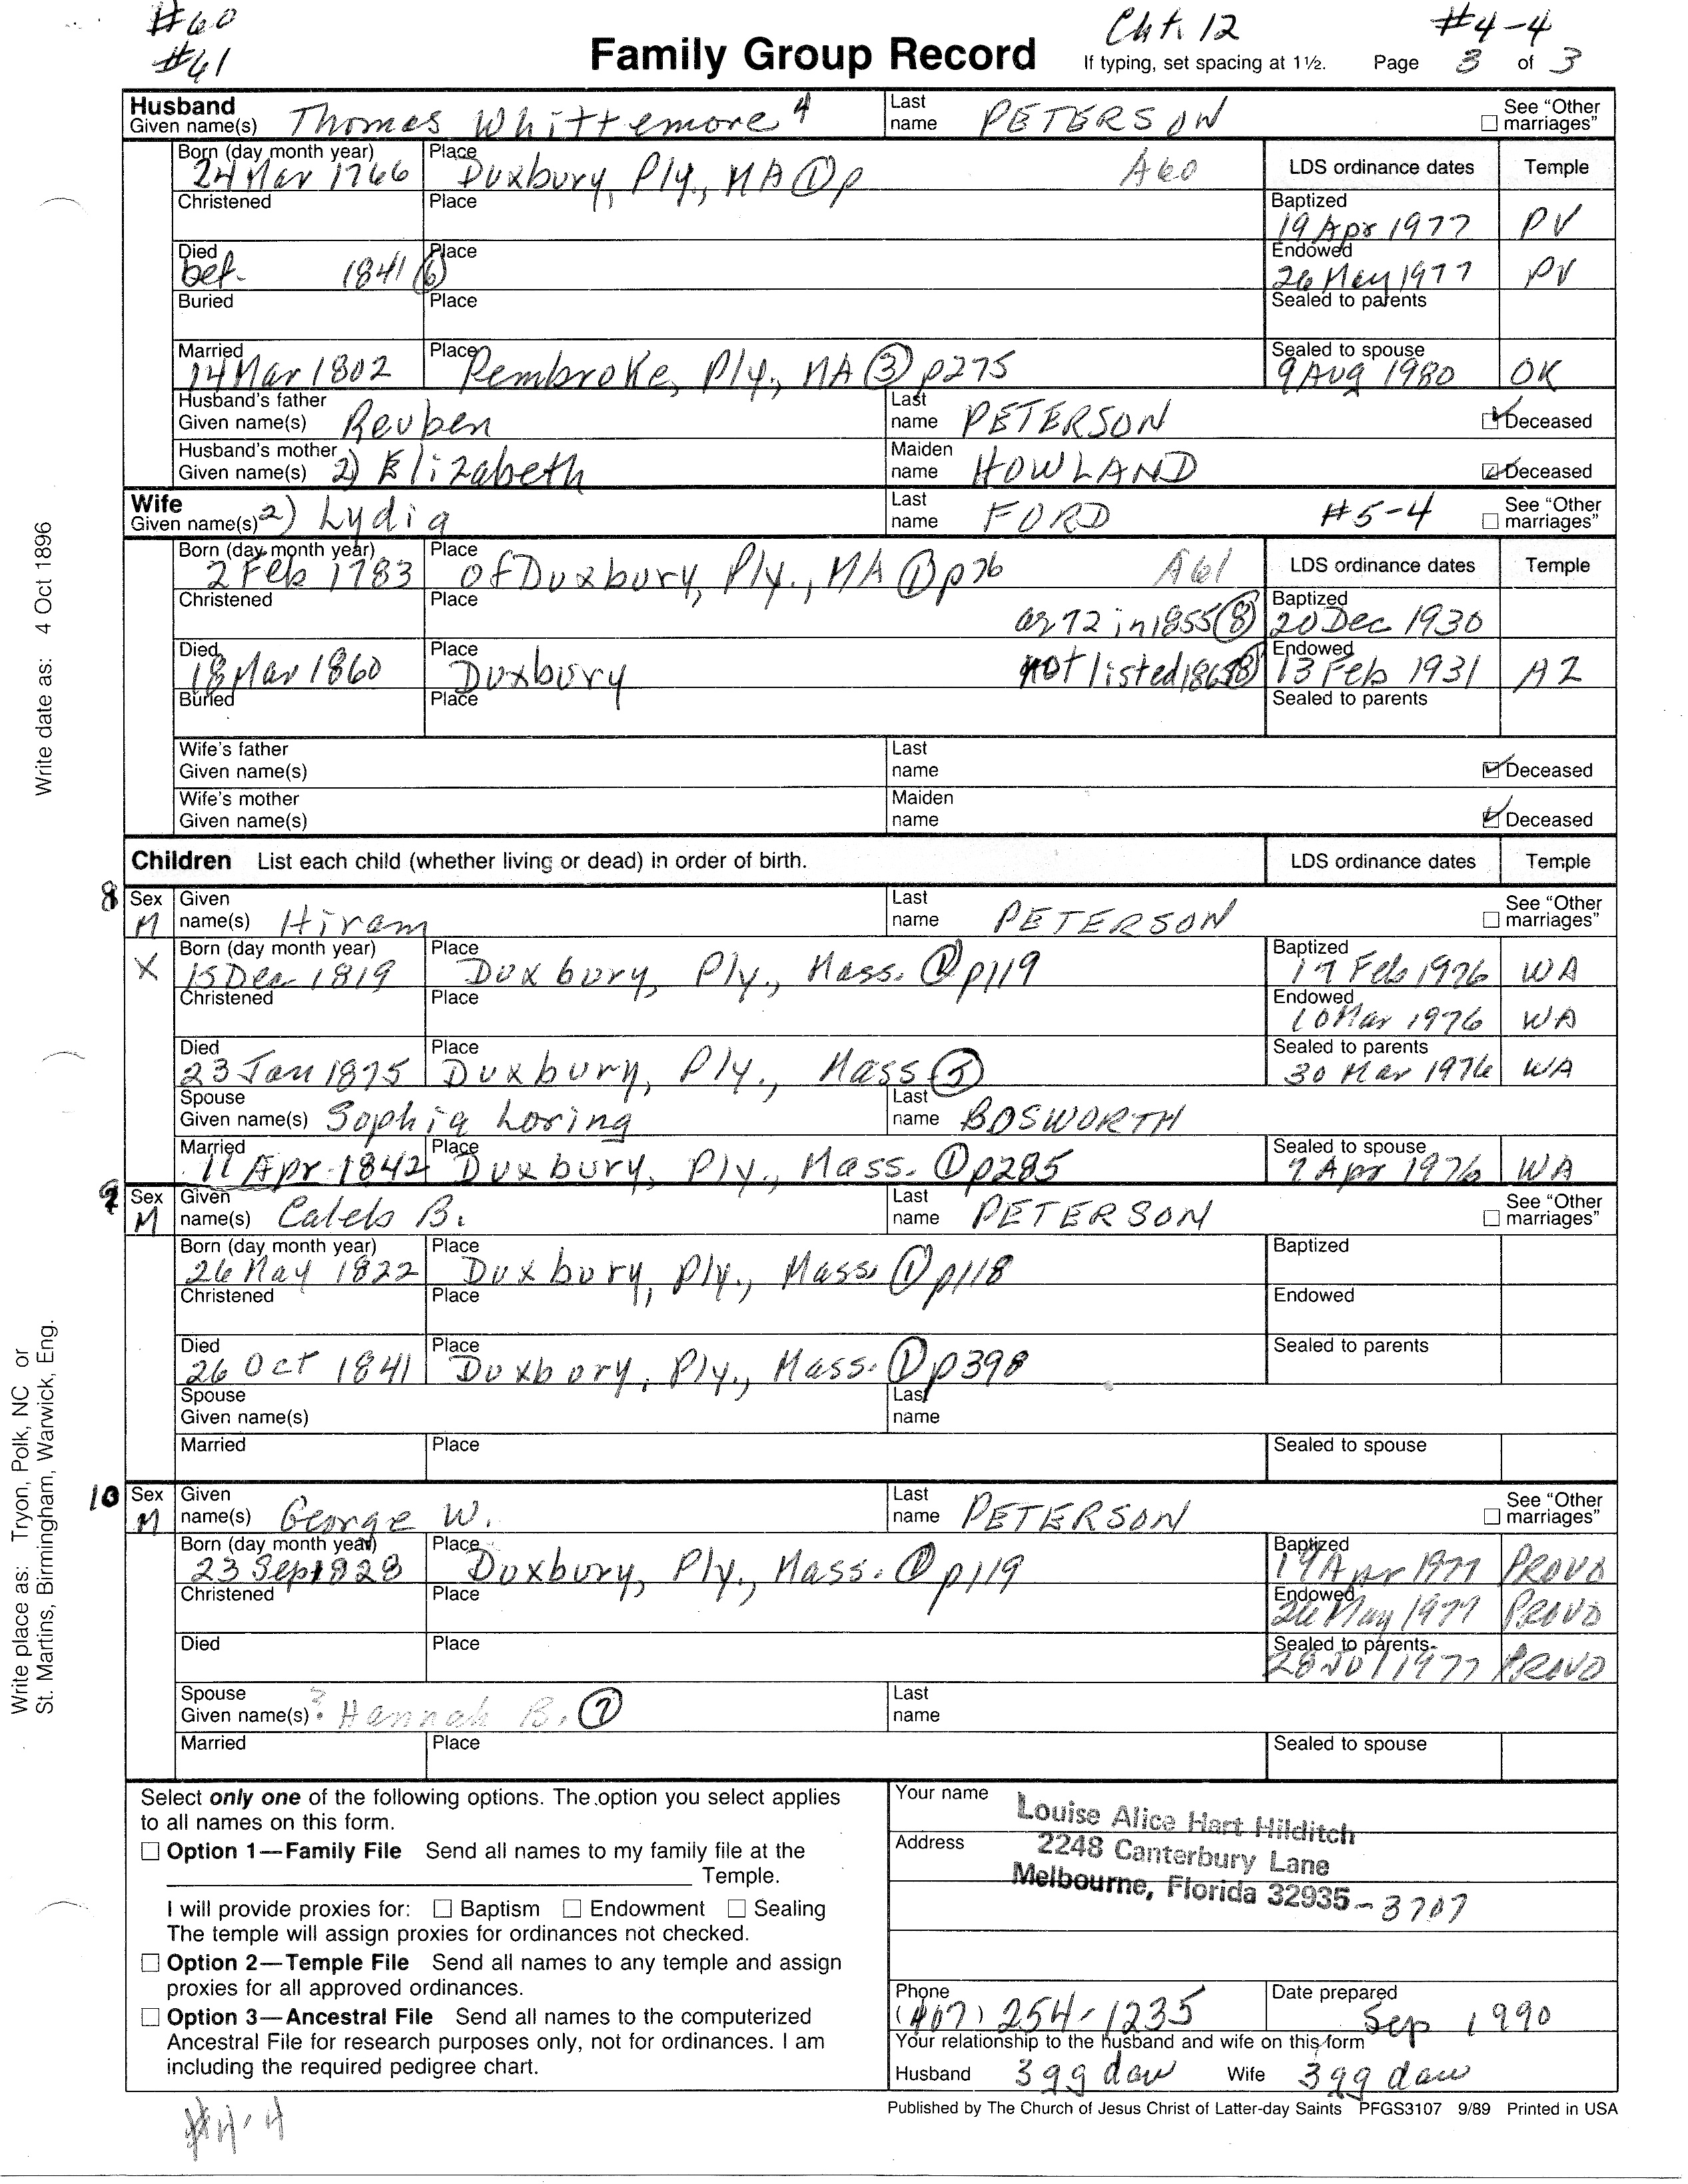 #60 Cht. 12 #4-4
#61 Family Group Record If typing, set spacing at 1½. Page 3 of 3
Husband
Given name(s) Thomas Whittemore 4 Last name PETERSON See "Other marriages"
Born (day month year) 24 Mar 1766 Place Duxbury, Ply., MA ① p A60 LDS ordinance dates Temple
Christened Place Baptized 19 Apr 1977 PV
Died bef. 1841 ⑥ Place Endowed 26 May 1977 PV
Buried Place Sealed to parents
Married 14 Mar 1802 Place Pembroke, Ply., MA ③ p275 Sealed to spouse 9 Aug 1980 OK
Husband's father Given name(s) Reuben Last name PETERSON Deceased
Husband's mother Given name(s) 2) Elizabeth Maiden name HOWLAND Deceased
Wife
Given name(s) 2) Lydia Last name FORD #5-4 See "Other marriages"
Born (day month year) 2 Feb 1783 Place Of Duxbury, Ply., MA ① p76 A61 LDS ordinance dates Temple
Christened Place 72 in 1855 ⑧ Baptized 20 Dec 1930
Died 18 Mar 1860 Place Duxbury not listed ⑧ Endowed 13 Feb 1931 AZ
Buried Place Sealed to parents
Wife's father Given name(s) Last name Deceased
Wife's mother Given name(s) Maiden name Deceased
Children List each child (whether living or dead) in order of birth. LDS ordinance dates Temple
8 Sex M Given name(s) Hiram Last name PETERSON See "Other marriages"
X Born (day month year) 15 Dec 1819 Place Duxbury, Ply., Mass. ① p119 Baptized 17 Feb 1976 WA
Christened Place Endowed 10 Mar 1976 WA
Died 23 Jan 1875 Place Duxbury, Ply., Mass ⑤ Sealed to parents 30 Mar 1976 WA
Spouse Given name(s) Sophia Loring Last name BOSWORTH
Married 11 Apr 1842 Place Duxbury, Ply., Mass. ① p285 Sealed to spouse 7 Apr 1976 WA
9 Sex M Given name(s) Caleb B. Last name PETERSON See "Other marriages"
Born (day month year) 26 May 1822 Place Duxbury, Ply., Mass. ① p118 Baptized
Christened Place Endowed
Died 26 Oct 1841 Place Duxbury, Ply., Mass. ① p398 Sealed to parents
Spouse Given name(s) Last name
Married Place Sealed to spouse
10 Sex M Given name(s) George W. Last name PETERSON See "Other marriages"
Born (day month year) 23 Sep 1828 Place Duxbury, Ply., Mass. ① p119 Baptized 19 Apr 1977 PROVO
Christened Place Endowed 26 May 1977 PROVO
Died Place Sealed to parents 28 Jul 1977 PROVO
Spouse Given name(s) ? Hannah B. ⑦ Last name
Married Place Sealed to spouse
Select only one of the following options. The option you select applies
to all names on this form.
Option 1—Family File Send all names to my family file at the
Temple.
I will provide proxies for: Baptism Endowment Sealing
The temple will assign proxies for ordinances not checked.
Option 2—Temple File Send all names to any temple and assign
proxies for all approved ordinances.
Option 3—Ancestral File Send all names to the computerized
Ancestral File for research purposes only, not for ordinances. I am
including the required pedigree chart.
Your name Louise Alice Hart Hilditch
Address 2248 Canterbury Lane
Melbourne, Florida 32935-3707
Phone (407) 254-1235 Date prepared Sep 1990
Your relationship to the husband and wife on this form
Husband 3 gg dau Wife 3 gg dau
Published by The Church of Jesus Christ of Latter-day Saints PFGS3107 9/89 Printed in USA
#4-4
Write date as: 4 Oct 1896
Write place as: Tryon, Polk, NC or
St. Martins, Birmingham, Warwick, Eng.